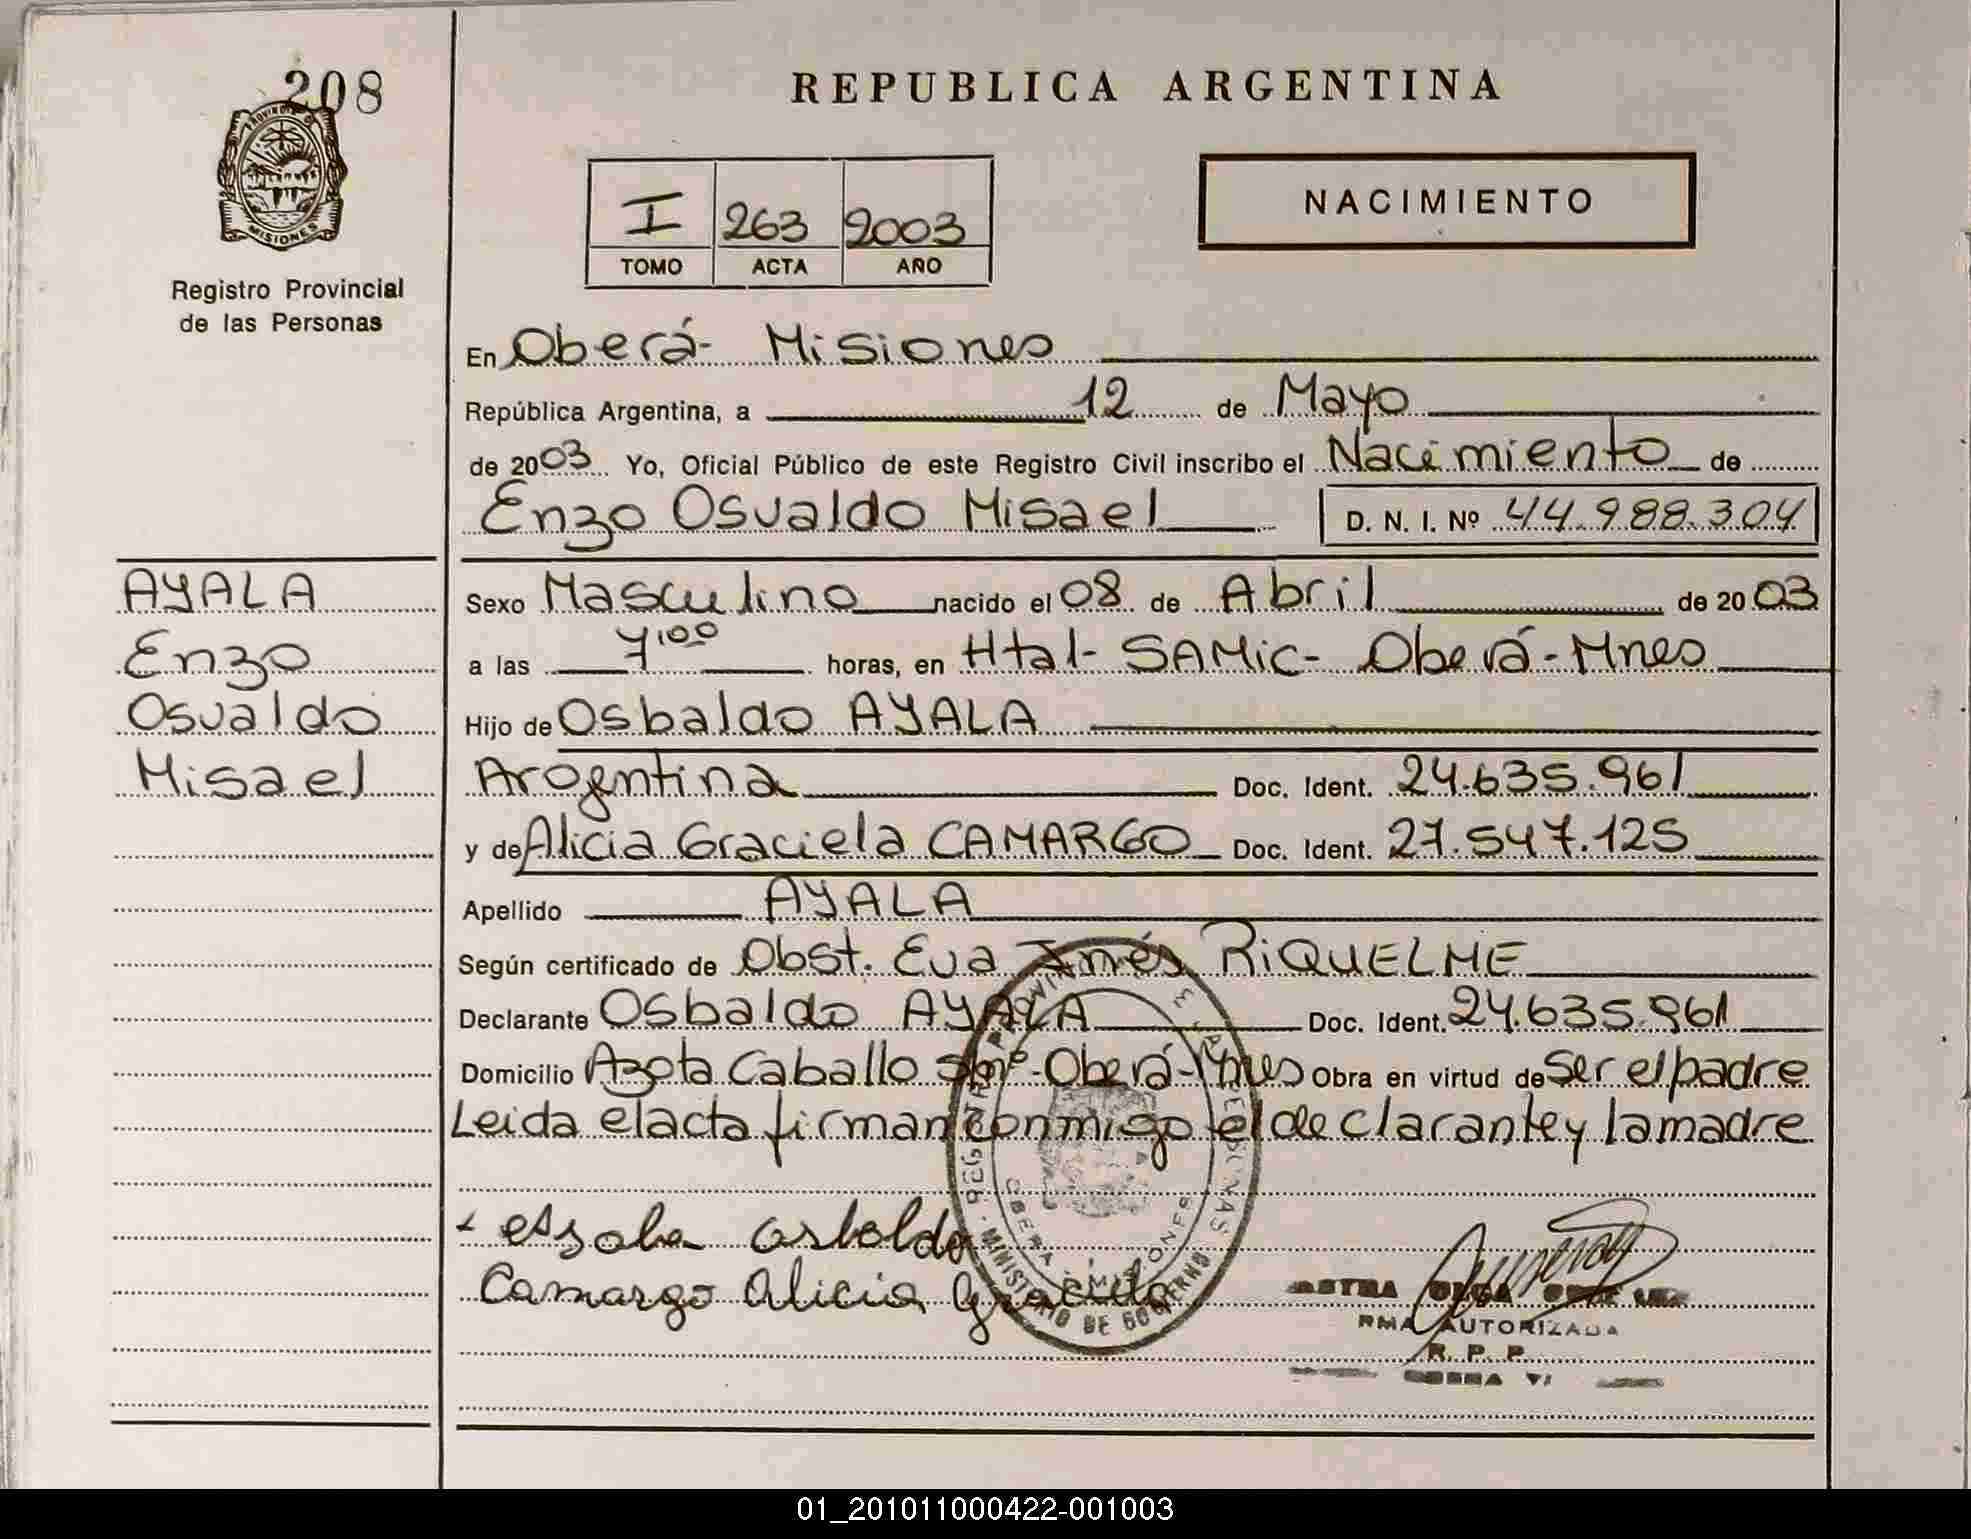 208
PROVINCIA DE
MISIONES
Registro Provincial
de las Personas
REPUBLICA ARGENTINA
I 263 2003
TOMO ACTA AÑO
NACIMIENTO
En Oberá- Misiones
República Argentina, a 12 de Mayo
de 2003 Yo, Oficial Público de este Registro Civil inscribo el Nacimiento de
Enzo Osvaldo Misael D. N. I. Nº 44.988.304
AYALA
Enzo
Osvaldo
Misael
Sexo Masculino nacido el 08 de Abril de 2003
a las 7'00 horas, en Htal- SAMic- Oberá-Mnes
Hijo de Osbaldo AYALA
Argentina Doc. Ident. 24.635.961
y de Alicia Graciela CAMARGO Doc. Ident. 27.547.125
Apellido AYALA
Según certificado de Obst. Eva Inés RiQUELME
Declarante Osbaldo AYALA Doc. Ident. 24.635.961
Domicilio Azota Caballo s/nº-Oberá-Mnes Obra en virtud de ser el padre
Leida el acta firman conmigo el declarante y la madre
osbaldo
Camargo Alicia Graciela
MINISTERIO DE GOBIERNO
OBERA MISIONES
AUTORIZADA
R. P. P.
01_201011000422-001003